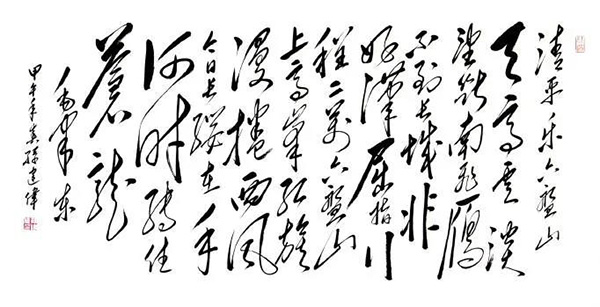 清平乐六盘山
天高雲淡
望断南飛雁
不到长城非
好漢屈指行
程二萬六盘山
上高峯红旗
漫捲西风
今日长缨在手
何时缚住
蒼龙
毛泽东
甲午年 孫建偉